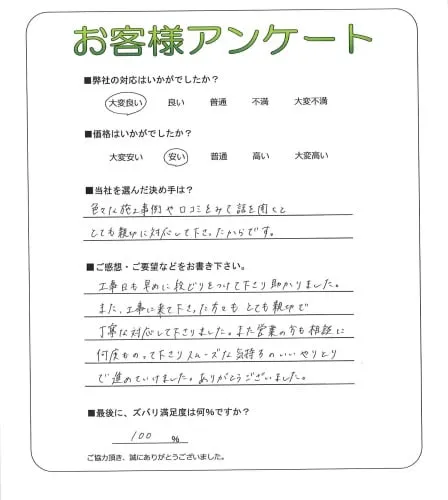 お客様アンケート
■弊社の対応はいかがでしたか？
大変良い 良い 普通 不満 大変不満
■価格はいかがでしたか？
大変安い 安い 普通 高い 大変高い
■当社を選んだ決め手は？
色々な施工事例や口コミをみて話を聞くと
とても親切に対応して下さったからです。
■ご感想・ご要望などをお書き下さい。
工事日も早めに段どりをつけて下さり助かりました。
また、工事に来て下さった方々も とても親切で
丁寧な対応して下さりました。また営業の方も相談に
何度ものって下さりスムーズな気持ちのいいやりとり
で進めていけました。ありがとうございました。
■最後に、ズバリ満足度は何%ですか？
100 %
ご協力頂き、誠にありがとうございました。